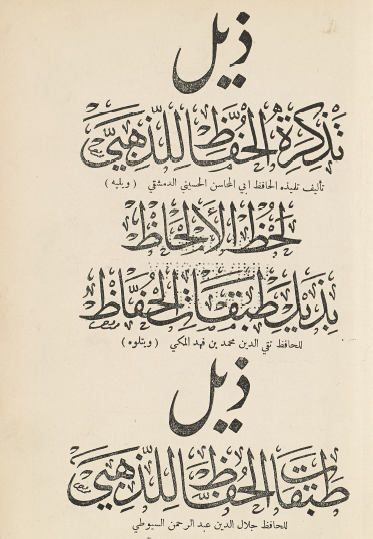 ذيل
تذكرة الحفاظ للذهبي
تأليف تلميذه الحافظ ابي المحاسن الحسيني الدمشقي ( ويليه )
لحظ الألحاظ
بذيل طبقات الحفاظ
للحافظ تقي الدين محمد بن فهد المكي ( ويتلوه )
ذيل
طبقات الحفاظ للذهبي
للحافظ جلال الدين عبد الرحمن السيوطي